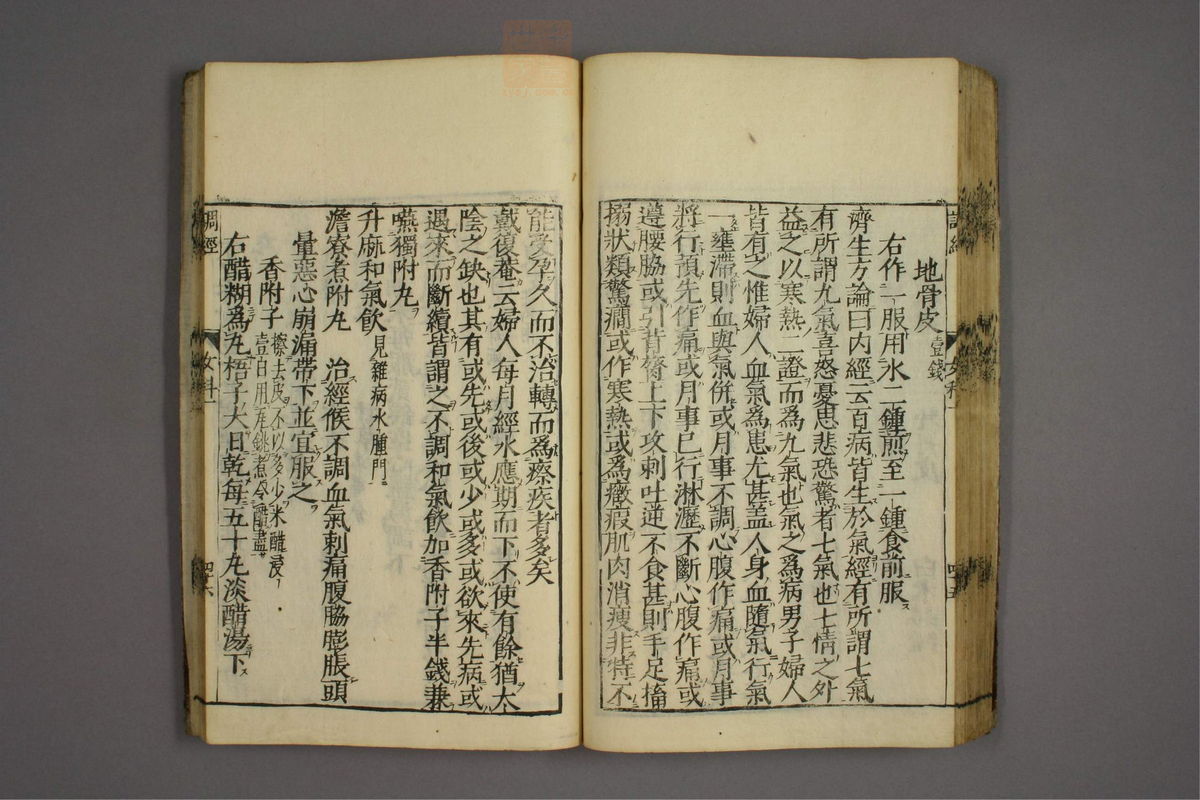 地骨皮壹錢
右作一服用水二鍾煎至一鍾食前服
濟生方論曰內經云百病皆生於氣經有所謂七氣
有所謂九氣喜怒憂思悲恐驚者七氣也七情之外
益之以寒熱二證而為九氣也氣之為病男子婦人
皆有之惟婦人血氣為患尤甚蓋人身血隨氣行氣
一壅滯則血與氣併或月事不調心腹作痛或月事
將行預先作痛或月事已行淋瀝不斷心腹作痛或
遶腰脇或引背膂上下攻刺吐逆不食甚則手足搐
搦狀類驚癎或作寒熱或為癥瘕肌肉消瘦非特不
能受孕久而不治轉而為瘵疾者多矣
戴復菴云婦人每月經水應期而下不使有餘猶太
陰之缺也其有或先或後或少或多或欲來先病或
遇來而斷續皆謂之不調和氣飲加香附子半錢兼
嚥獨附丸
升麻和氣飲見雜病水腫門
澹寮煮附丸 治經候不調血氣刺痛腹脇膨脹頭
暈惡心崩漏帶下並宜服之
香附子擦去皮不以多少米醋浸
壹日用瓦銚煮令醋盡
右醋糊為丸梧子大日乾每五十丸淡醋湯下
調經
女科一
四十六